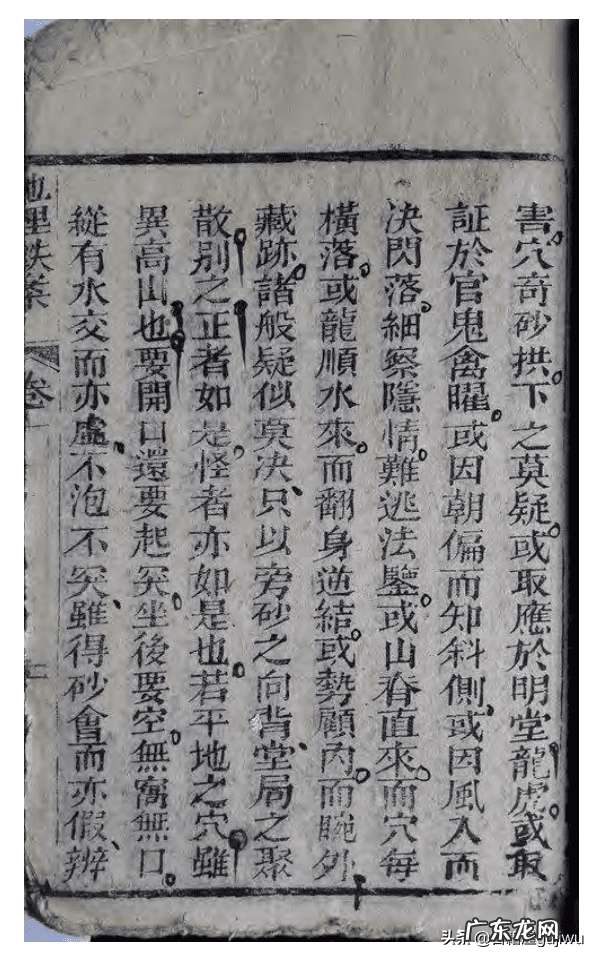 害。穴奇砂拱。下之莫疑。或取應於明堂龍虎。或取
証於官鬼禽曜。或因朝偏而知斜側、或因風入而
決閃落。細察隱情。難逃法鑒。或山脊直來。而穴每
橫落。或龍順水來。而翻身逆結。或勢顧內。而睕外
藏跡。諸般疑似莫決、只以旁砂之向背、堂局之聚
散。別之正者如是。怪者亦如是也。若平地之穴雖
異高山也要開口還要起突。坐後要空。無窩無口。
縱有水交而亦虛、不泡不突、雖得砂會而亦假、辨
地理鉄案 卷
头条
gujwu
广东龙网